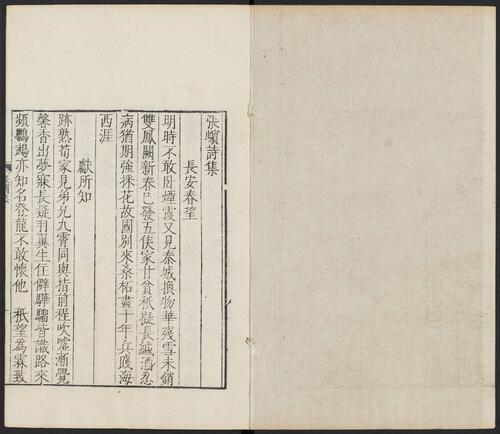 張蠙詩集
長安春望
明時不敢卧煙霞又見秦城換物華殘雪未銷
雙鳳闕新春已發五侯家甘貧秪擬長緘酒忍
病猶期強採花故國別來桑柘盡十年兵踐海
西涯
獻所知
跡熟荀家見弟兄九霄同與指前程吹噓漸覺
馨香出夢寐長疑羽翼生住僻驊騮皆識路來
頻鸚鵡亦知名登龍不敢懷他 秪望爲霖致